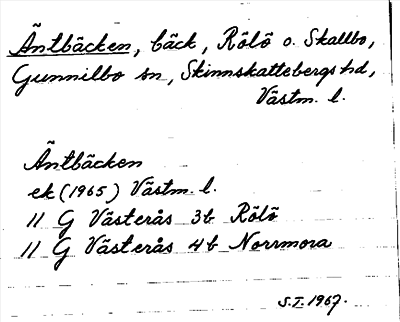 Äntbäcken, bäck, Rölö o. Skallbo,
Gunnilbo sn, Skinnskattebergs hd,
Västm. l.
Äntbäcken
ek (1965) Västm. l.
11 G Västerås 3b Rölö
11 G Västerås 4b Norrmora
S.I. 1967.